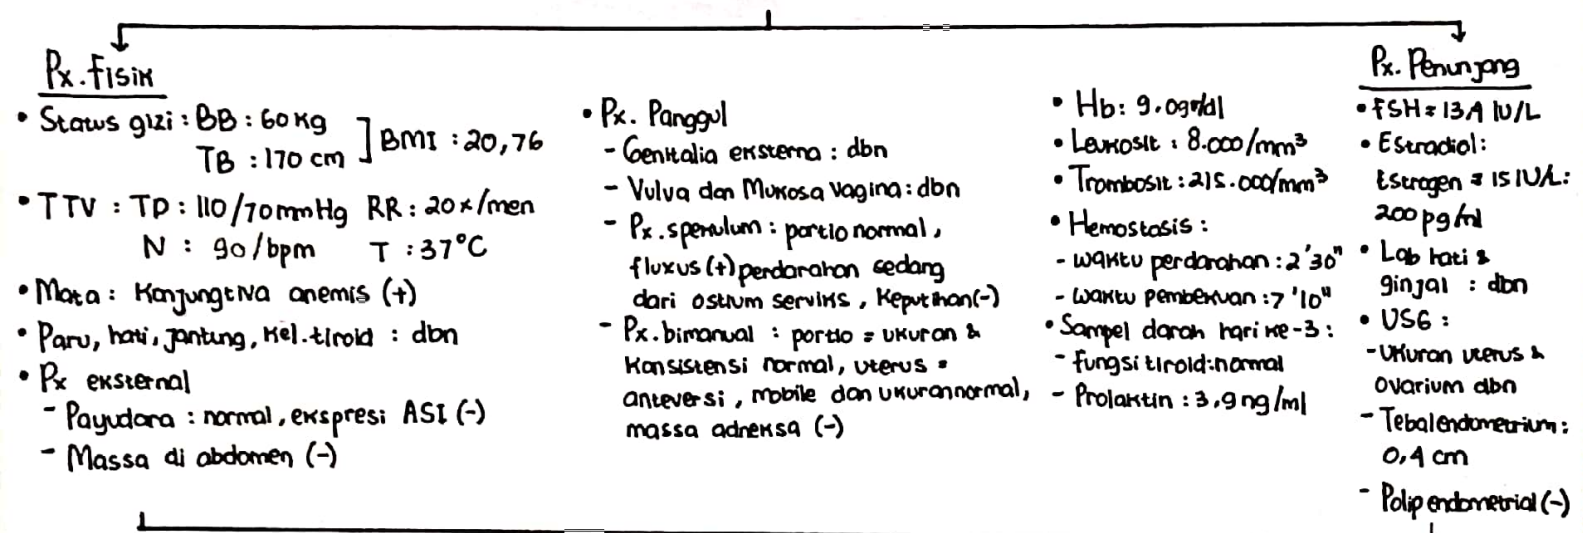 Px. Fisik
• Status gizi : BB : 60 kg
TB : 170 cm ] BMI : 20,76
• TTV : TD : 110/70 mmHg RR : 20x/men
N : 90/bpm T : 37°C
• Mata : Konjungtiva anemis (+)
• Paru, hati, jantung, kel. tiroid : dbn
• Px eksternal
- Payudara : normal, ekspresi ASI (-)
- Massa di abdomen (-)
• Px. Panggul
- Genitalia eksterna : dbn
- Vulva dan Mukosa vagina : dbn
- Px. spekulum : portio normal,
fluxus (+) perdarahan sedang
dari ostium serviks, keputihan (-)
- Px. bimanual : portio = ukuran &
konsistensi normal, uterus =
anteversi, mobile dan ukuran normal,
massa adneksa (-)
• Hb : 9.0 gr/dl
• Leukosit : 8.000/mm³
• Trombosit : 215.000/mm³
• Hemostasis :
- waktu perdarahan : 2'30"
- waktu pembekuan : 7'10"
• Sampel darah hari ke-3 :
- fungsi tiroid : normal
- Prolaktin : 3,9 ng/ml
Px. Penunjang
• FSH = 13,4 IU/L
• Estradiol :
Estrogen = 15 IU/L :
200 pg/ml
• Lab hati &
ginjal : dbn
• USG :
- Ukuran uterus &
ovarium dbn
- Tebal endometrium :
0,4 cm
- Polip endometrial (-)